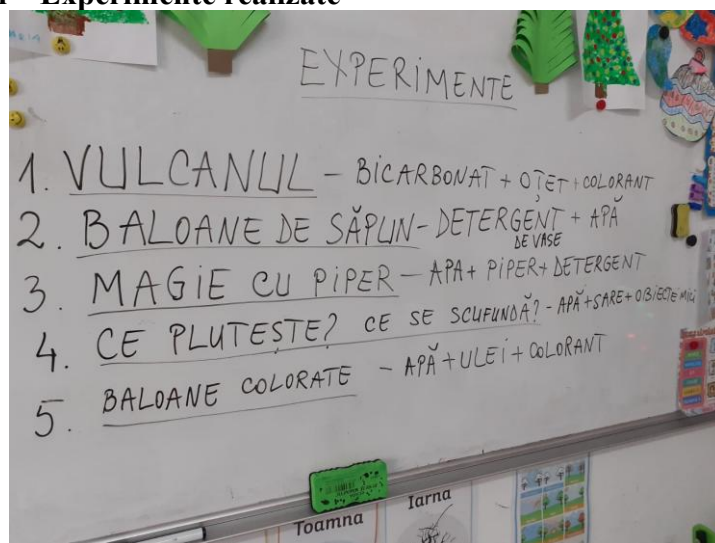 Experimente realizate
EXPERIMENTE
1. VULCANUL - BICARBONAT + OȚET + COLORANT
2. BALOANE DE SĂPUN - DETERGENT + APĂ
DE VASE
3. MAGIE CU PIPER - APA + PIPER + DETERGENT
4. CE PLUTEȘTE? CE SE SCUFUNDĂ? - APĂ + SARE + OBIECTE MICI
5. BALOANE COLORATE - APĂ + ULEI + COLORANT
Toamna
Iarna